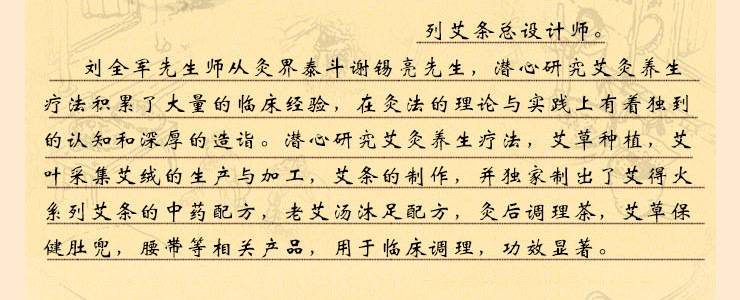 列艾条总设计师。
刘全军先生师从灸界泰斗谢锡亮先生，潜心研究艾灸养生
疗法积累了大量的临床经验，在灸法的理论与实践上有着独到
的认知和深厚的造诣。潜心研究艾灸养生疗法，艾草种植，艾
叶采集艾绒的生产与加工，艾条的制作，并独家制出了艾得火
系列艾条的中药配方，老艾汤沐足配方，灸后调理茶，艾草保
健肚兜，腰带等相关产品，用于临床调理，功效显著。